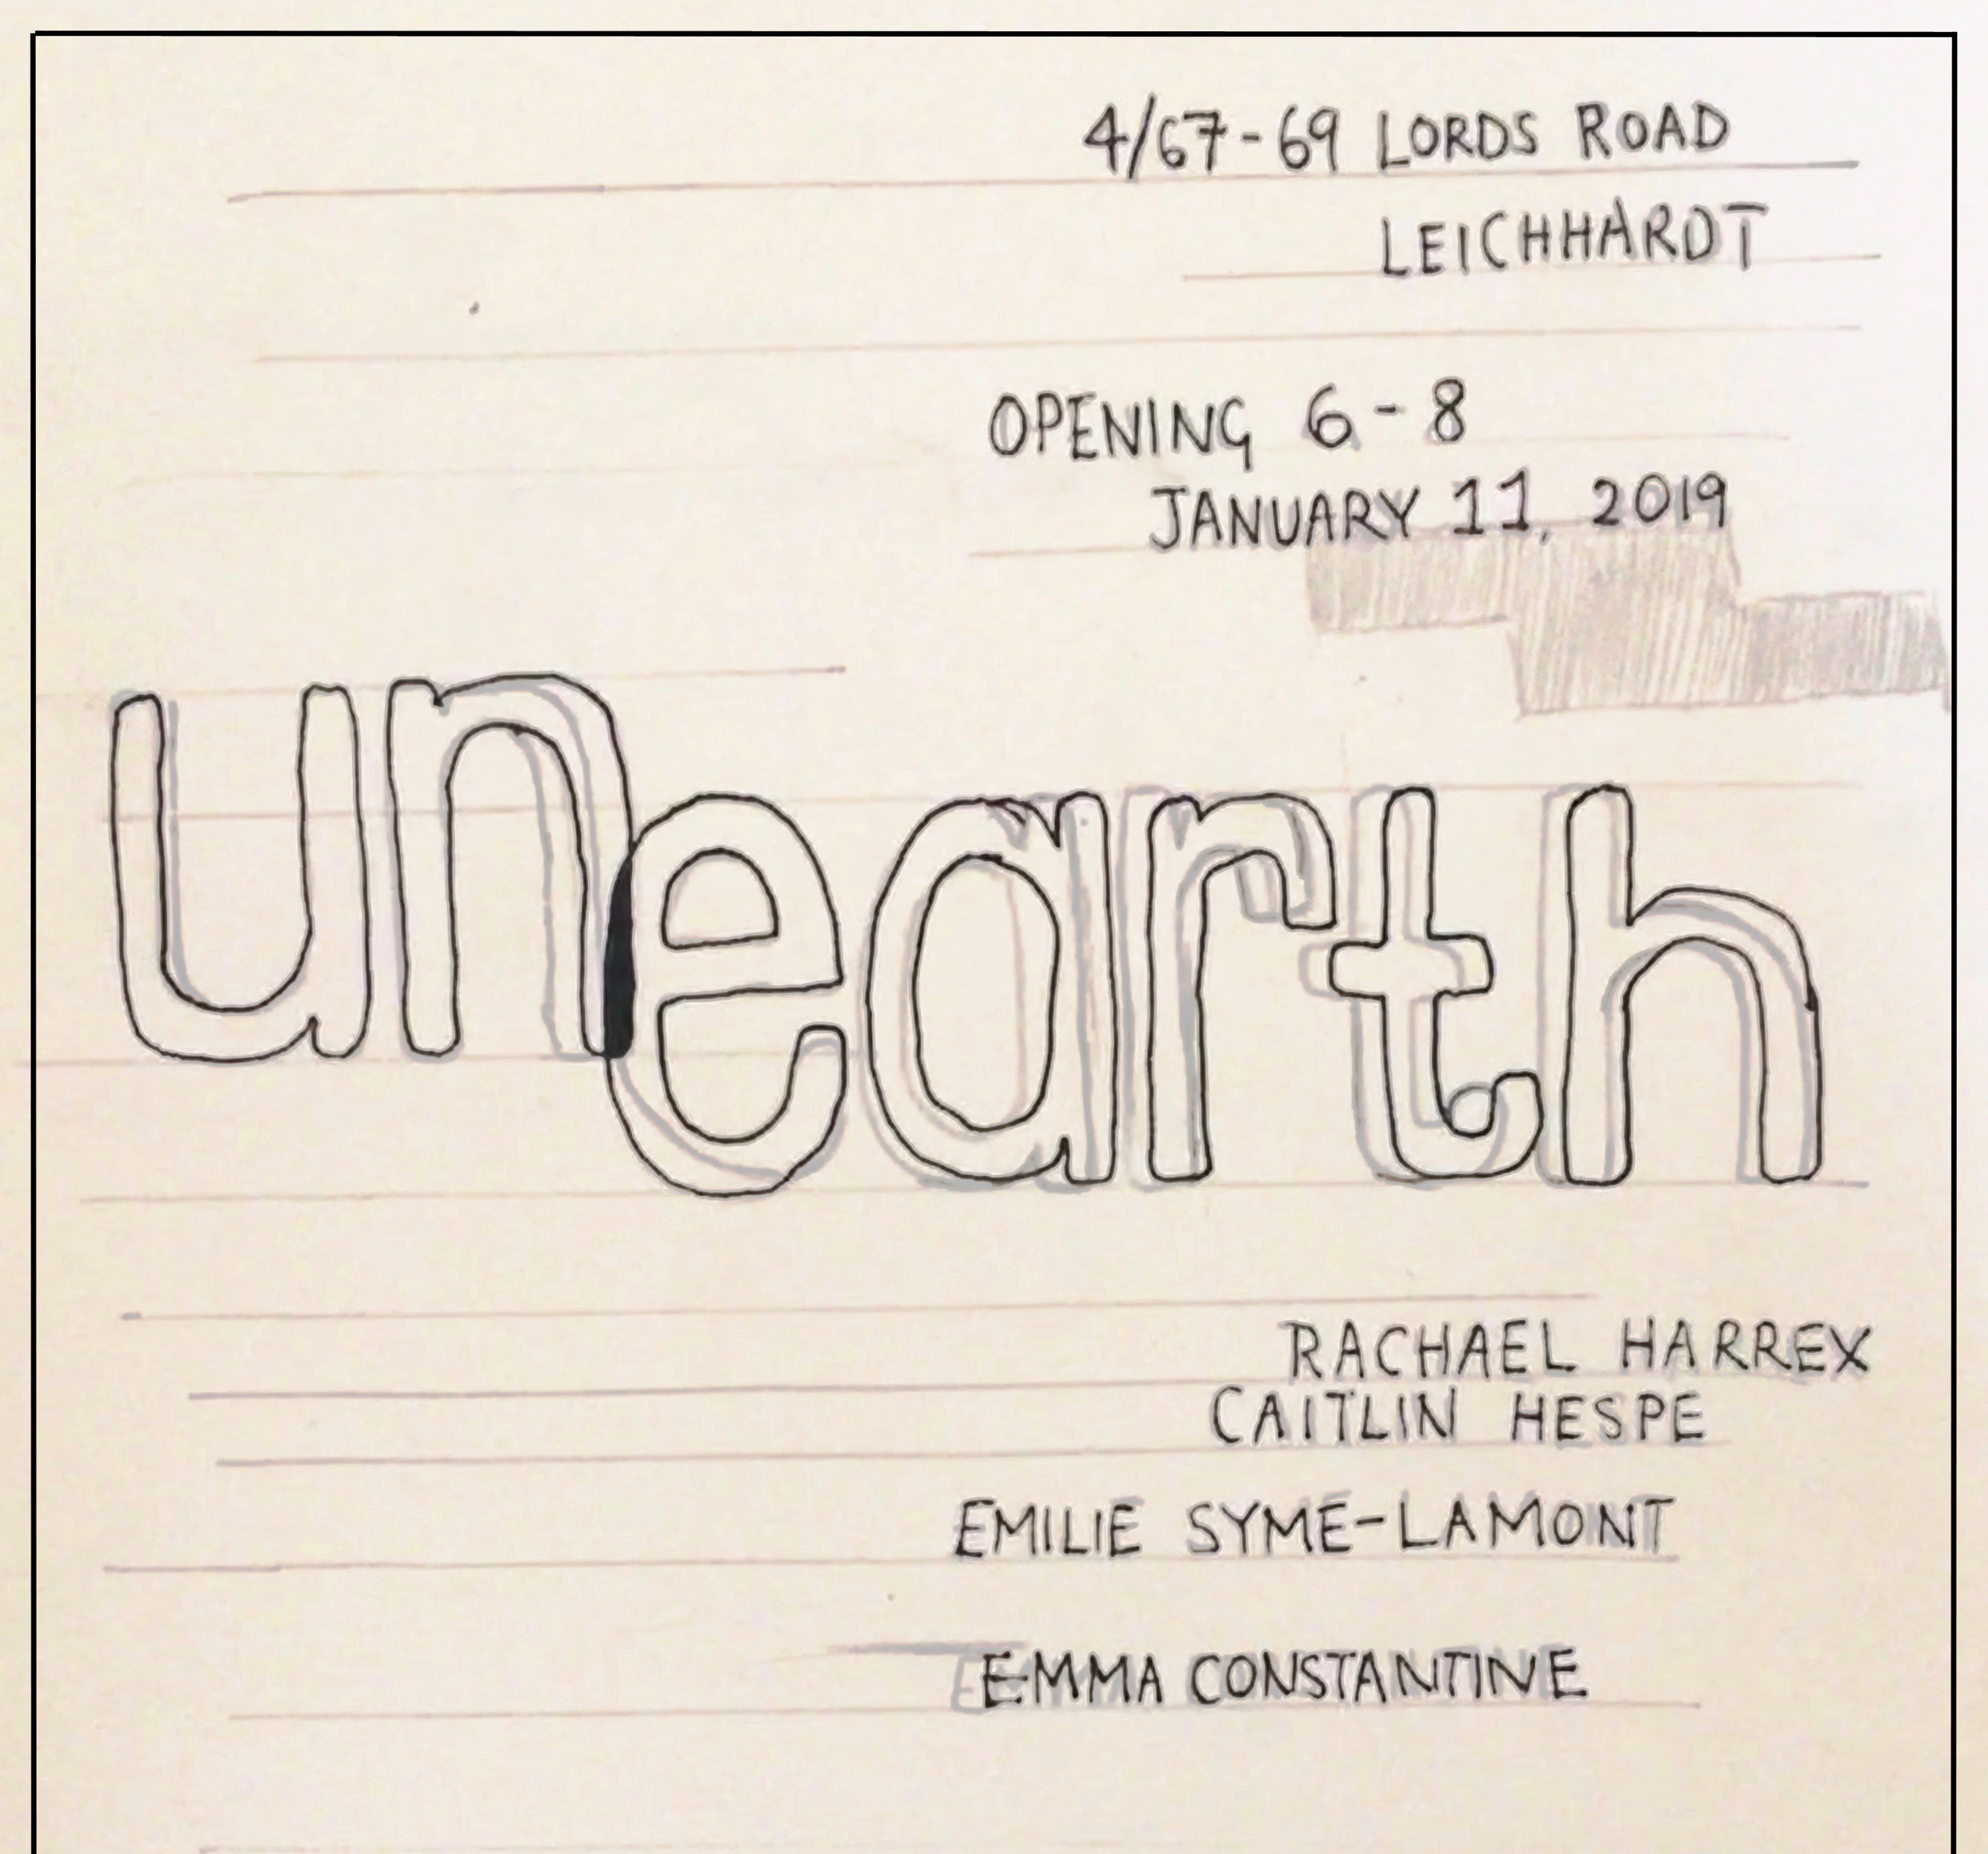 4/67-69 LORDS ROAD
LEICHHARDT
OPENING 6-8
JANUARY 11, 2019
unearth
RACHAEL HARREX
CAITLIN HESPE
EMILIE SYME-LAMONT
EMMA CONSTANTINE